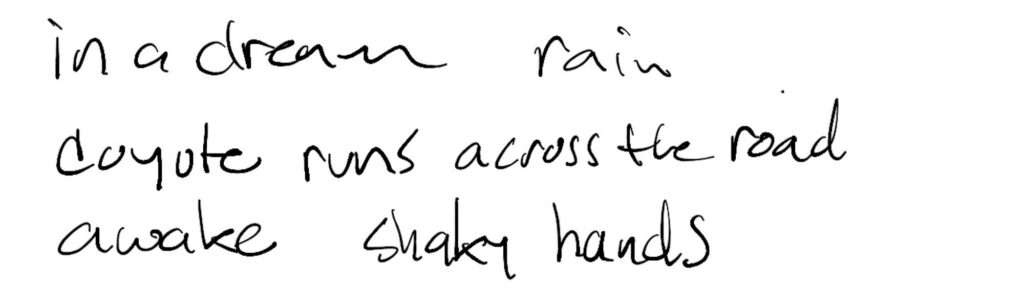 in a dream rain
coyote runs across the road
awake shaky hands